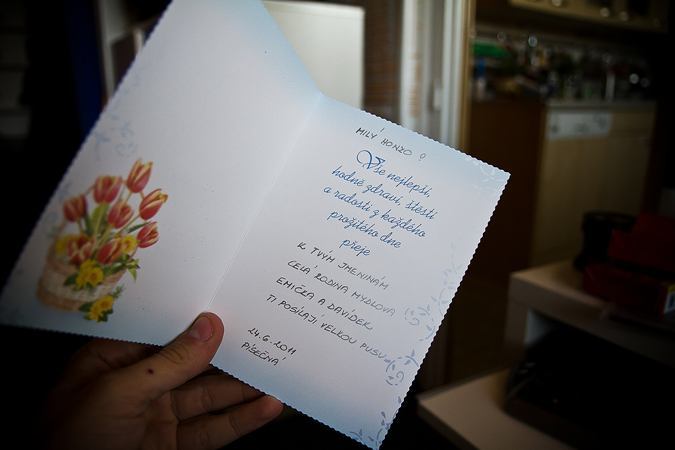 MILÝ HONZO !
Vše nejlepší,
hodně zdraví, štěstí
a radosti z každého
prožitého dne
přeje
K TVÝM JMENINÁM
CELÁ RODINA MYDLOVA
EMIČKA A DAVÍDEK
TI POSÍLAJÍ VELKOU PUSU
24.6.2011
PÍSEČNÁ